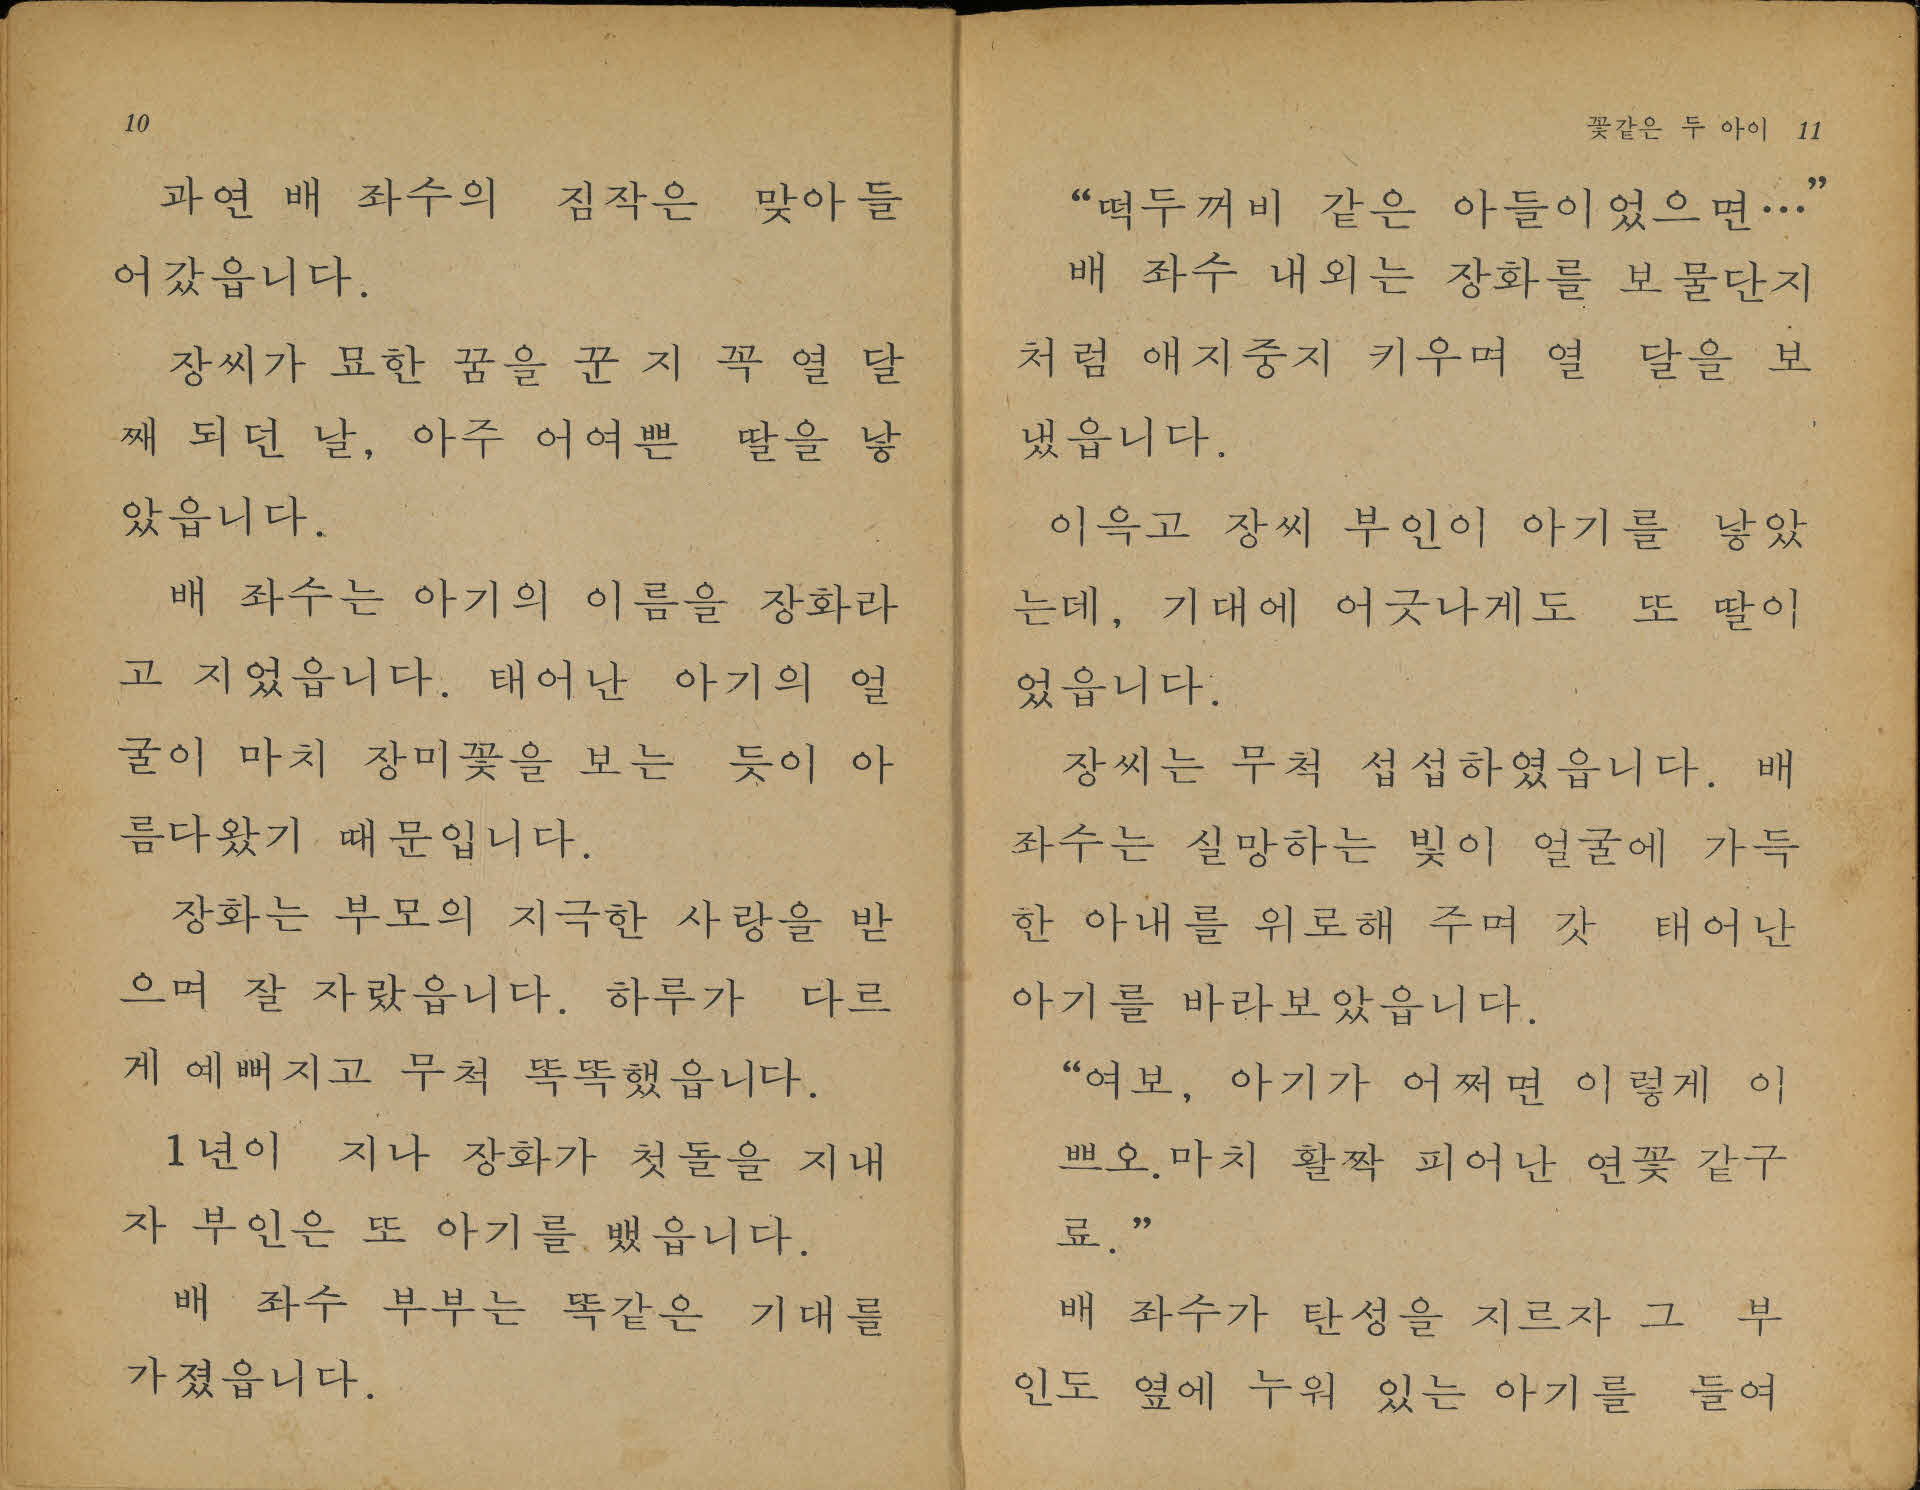 10
과연 배 좌수의 짐작은 맞아들
어갔읍니다.
장씨가 묘한 꿈을 꾼 지 꼭 열 달
째 되던 날, 아주 어여쁜 딸을 낳
았읍니다.
배 좌수는 아기의 이름을 장화라
고 지었읍니다. 태어난 아기의 얼
굴이 마치 장미꽃을 보는 듯이 아
름다왔기 때문입니다.
장화는 부모의 지극한 사랑을 받
으며 잘 자랐읍니다. 하루가 다르
게 예뻐지고 무척 똑똑했읍니다.
1년이 지나 장화가 첫돌을 지내
자 부인은 또 아기를 뱄읍니다.
배 좌수 부부는 똑같은 기대를
가졌읍니다.
꽃같은 두 아이 11
“떡두꺼비 같은 아들이었으면…”
배 좌수 내외는 장화를 보물단지
처럼 애지중지 키우며 열 달을 보
냈읍니다.
이윽고 장씨 부인이 아기를 낳았
는데, 기대에 어긋나게도 또 딸이
었읍니다.
장씨는 무척 섭섭하였읍니다. 배
좌수는 실망하는 빛이 얼굴에 가득
한 아내를 위로해 주며 갓 태어난
아기를 바라보았읍니다.
“여보, 아기가 어쩌면 이렇게 이
쁘오. 마치 활짝 피어난 연꽃 같구
료.”
배 좌수가 탄성을 지르자 그 부
인도 옆에 누워 있는 아기를 들여